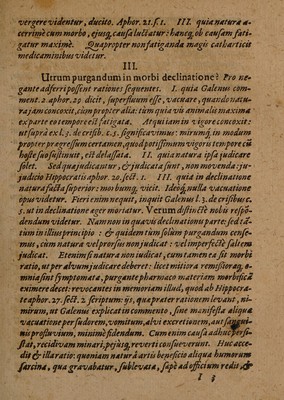 vergere videntur, ducito. Aphor. 21. s. 1. III. quia natura a-
cerrimè cum morbo, ejusq; causa luctatur: hancq; ob causam fati-
gatur maximè. Quapropter non fatiganda magis catharticis
medicaminibus videtur.
III.
Utrum purgandum in morbi declinatione? Pro ne-
gante adferri possent rationes sequentes. I. quia Galenus com-
ment. 2. aphor. 29 dicit, superfluum esse, vacuare, quando natu-
ra jam concoxit, cum propter alia: tum quia vis animalis maxima
ex parte eo tempore est fatigata. Atqui jam in vigore concoxit:
ut supra ex l. 3. de crisib. c. 5. significavimus: mirumq; in modum
propter pregressum certamen, quod potissimum vigoris tempore cũ
hoste suo sustinuit, est delassata. II. quia natura ipsa judicare
solet. Sed quae judicantur, & judicata sunt, non movenda: ju-
judicio Hippocratis aphor. 20. sect. 1. III. quia in declinatione
natura facta superior: morbumq; vicit. Ideoq; nulla vacuatione
opus videtur. Fieri enim nequit, inquit Galenus l. 3. de crisibus c.
5. ut in declinatione aeger moriatur. Verum distinctè nobis respõ-
dendum videtur. Nam non in quavis declinationis parte, sed tã-
tum in illius principio: & quidem tum solùm purgandum cense-
mus, cùm natura vel prorsus non judicat: vel imperfectè saltem
judicat. Etenim si natura non judicat, cum tamen ea sit morbi
ratio, ut per alvum judicare deberet: licet mitiora remissioraq; o-
mnia sint symptomata, purgante pharmaco materiam morbificã
eximere decet: revocantes in memoriam illud, quod ab Hippocra-
te aphor. 27. sect. 2. scriptum: ijs, quae praeter rationem levant, ni-
mirum, ut Galenus explicat in commento, sine manifesta aliqua
vacuatione per sudorem, vomitum, alvi excretionem, aut sangui-
nis profluvium, minimè fidendum. Cum enim causa adhuc persi-
stat, recidivam minari, pejusq; reverti consueverunt. Huc acce-
dis & illa ratio: quoniam natura artis beneficio aliqua humorum
sarcina, qua gravabatur, sublevata, sapè ad officium redit, &
I 3